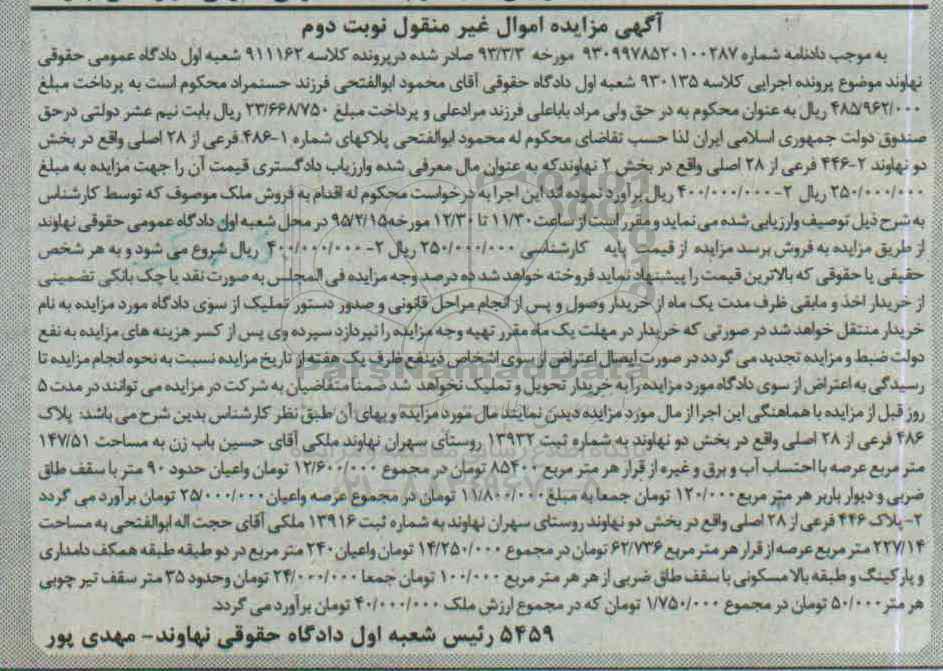 آگهی مزایده اموال غیر منقول نوبت دوم
به موجب دادنامه شماره ۹۳۰۹۹۷۸۵۲۰۱۰۰۲۸۷ مورخه ۹۳/۳/۳ صادر شده درپرونده کلاسه ۹۱۱۱۶۲ شعبه اول دادگاه عمومی حقوقی
نهاوند موضوع پرونده اجرایی کلاسه ۹۳۰۱۳۵ شعبه اول دادگاه حقوقی آقای محمود ابوالفتحی فرزند حسنمراد محکوم است به پرداخت مبلغ
۴۸۵/۹۶۲/۰۰۰ ریال به عنوان محکوم به در حق ولی مراد باباعلی فرزند مرادعلی و پرداخت مبلغ ۲۳/۶۶۸/۷۵۰ ریال بابت نیم عشر دولتی درحق
صندوق دولت جمهوری اسلامی ایران لذا حسب تقاضای محکوم له محمود ابوالفتحی پلاکهای شماره ۱-۴۸۶ فرعی از ۲۸ اصلی واقع در بخش
دو نهاوند ۲-۴۴۶ فرعی از ۲۸ اصلی واقع در بخش ۲ نهاوندکه به عنوان مال معرفی شده وارزیاب دادگستری قیمت آن را جهت مزایده به مبلغ
۲۵۰/۰۰۰/۰۰۰ ریال ۲- ۴۰۰/۰۰۰/۰۰۰ ریال برآورد نموده اند این اجرا به درخواست محکوم له اقدام به فروش ملک موصوف که توسط کارشناس
به شرح ذیل توصیف وارزیابی شده می نماید و مقرر است از ساعت ۱۱/۳۰ تا ۱۲/۳۰ مورخه ۹۵/۴/۱۵ در محل شعبه اول دادگاه عمومی حقوقی نهاوند
از طریق مزایده به فروش برسد مزایده از قیمت پایه کارشناسی ۲۵۰/۰۰۰/۰۰۰ ریال ۲- ۴۰۰/۰۰۰/۰۰۰ ریال شروع می شود و به هر شخص
حقیقی یا حقوقی که بالاترین قیمت را پیشنهاد نماید فروخته خواهد شد ده درصد وجه مزایده فی المجلس به صورت نقد یا چک بانکی تضمینی
از خریدار اخذ و مابقی ظرف مدت یک ماه از خریدار وصول و پس از انجام مراحل قانونی و صدور دستور تملیک از سوی دادگاه مورد مزایده به نام
خریدار منتقل خواهد شد در صورتی که خریدار در مهلت یک ماه مقرر تهیه وجه مزایده را نپردازد سپرده وی پس از کسر هزینه های مزایده به نفع
دولت ضبط و مزایده تجدید می گردد در صورت ایصال اعتراض از سوی اشخاص ذینفع ظرف یک هفته از تاریخ مزایده نسبت به نحوه انجام مزایده تا
رسیدگی به اعتراض از سوی دادگاه مورد مزایده را به خریدار تحویل و تملیک نخواهد شد ضمنا متقاضیان به شرکت در مزایده می توانند در مدت ۵
روز قبل از مزایده با هماهنگی این اجرا از مال مورد مزایده دیدن نمایند مال مورد مزایده و بهای آن طبق نظر کارشناس بدین شرح می باشد: پلاک
۴۸۶ فرعی از ۲۸ اصلی واقع در بخش دو نهاوند به شماره ثبت ۱۳۹۳۲ روستای سهران نهاوند ملکی آقای حسین باب زن به مساحت ۱۴۷/۵۱
متر مربع عرصه با احتساب آب و برق و غیره از قرار هر متر مربع ۸۵۴۰۰ تومان در مجموع ۱۲/۶۰۰/۰۰۰ تومان واعیان حدود ۹۰ متر با سقف طاق
ضربی و دیوار باربر هر متر مربع ۱۲۰/۰۰۰ تومان جمعا به مبلغ ۱۱/۸۰۰/۰۰۰ تومان در مجموع عرصه واعیان ۲۵/۰۰۰/۰۰۰ تومان برآورد می گردد
۲- پلاک ۴۴۶ فرعی از ۲۸ اصلی واقع در بخش دو نهاوند روستای سهران نهاوند به شماره ثبت ۱۳۹۱۶ ملکی آقای حجت اله ابوالفتحی به مساحت
۲۲۷/۱۴ متر مربع عرصه از قرار هر متر مربع ۶۲/۷۳۶ تومان در مجموع ۱۴/۲۵۰/۰۰۰ تومان واعیان ۲۴۰ متر مربع در دو طبقه طبقه همکف دامداری
و پارکینگ و طبقه بالا مسکونی با سقف طاق ضربی از هر هر متر مربع ۱۰۰/۰۰۰ تومان جمعا ۲۴/۰۰۰/۰۰۰ تومان وحدود ۳۵ متر سقف تیر چوبی
هر متر ۵۰/۰۰۰ تومان در مجموع ۱/۷۵۰/۰۰۰ تومان که در مجموع ارزش ملک ۴۰/۰۰۰/۰۰۰ تومان برآورد می گردد.
۵۴۵۹ رئیس شعبه اول دادگاه حقوقی نهاوند- مهدی پور
ParsNamadData